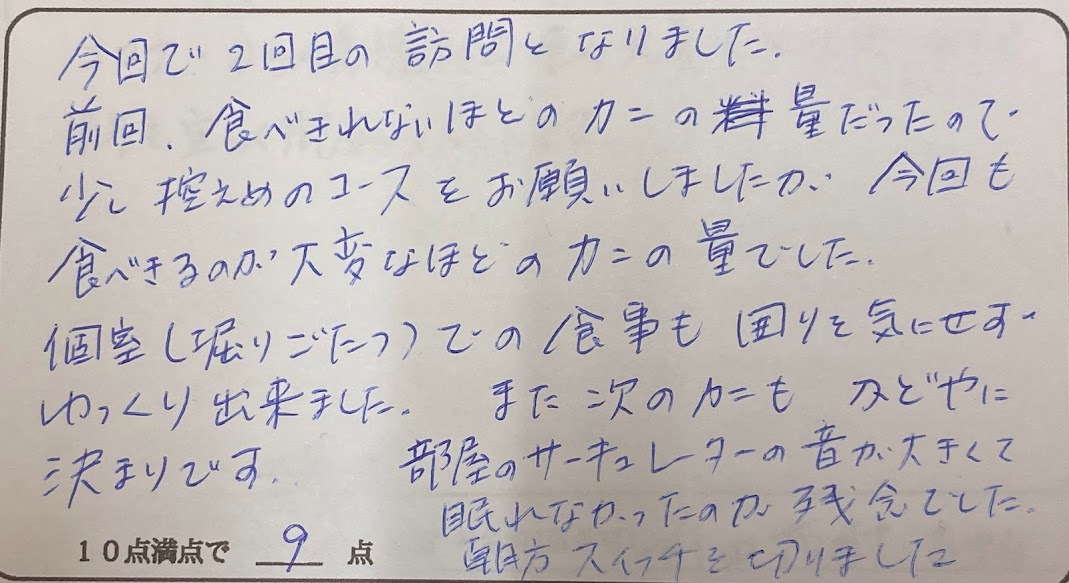 今回で2回目の訪問となりました.
前回.食べきれないほどのカニの量だったので
少し控えめのコースをお願いしましたが 今回も
食べきるのが大変なほどのカニの量でした.
個室(堀りごたつ)での食事も周りを気にせず
ゆっくり出来ました. また次のカニも かどやに
決まりです.
部屋のサーキュレーターの音が大きくて
眠れなかったのが残念でした.
朝方スイッチを切りました
10点満点で 9 点